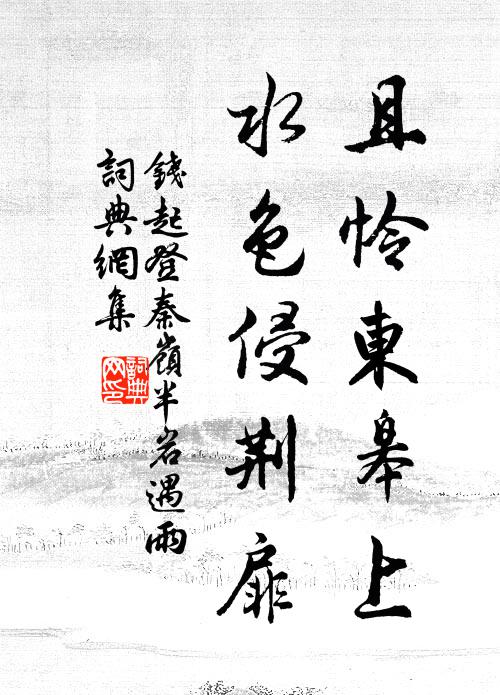 且怜東皋上
水色侵荆扉
錢起登秦嶺半岩遇雨
詞典網集
詞典網印